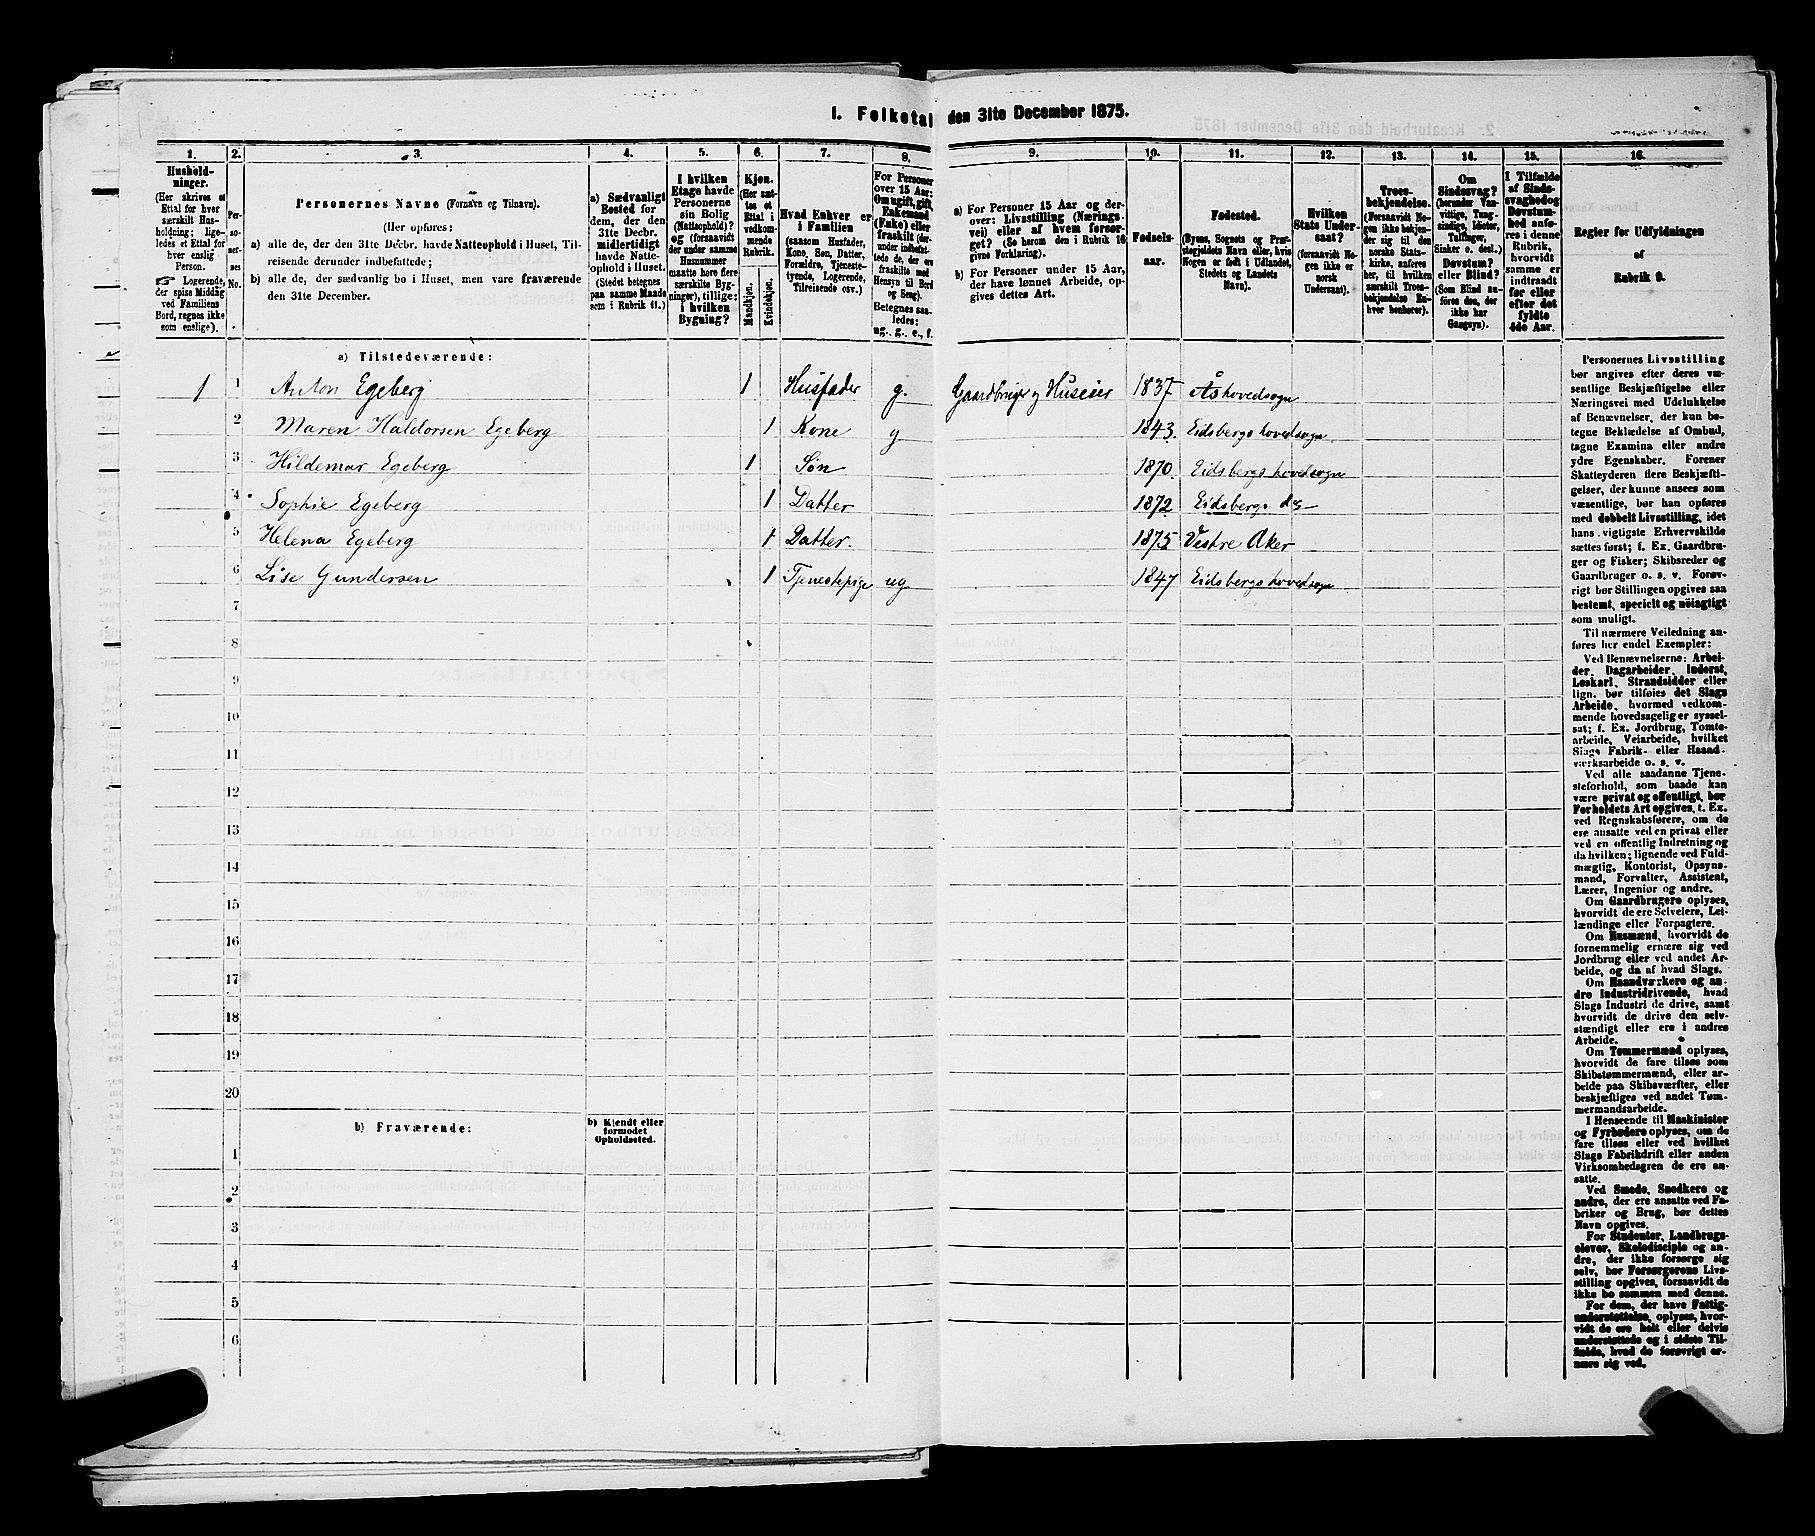 1. Folketal den 31te December 1875.
1. 2. 3. 4. 5. 6. 7. 8. 9. 10. 11. 12. 13. 14. 15. 16.
Hushold-
ninger.
(Her skrives et
Ettal for hver
særskilt Hus-
holdning; lige-
ledes et Ettal for
hver enslig
Person.
☞ Logerende,
der spise Middag
ved Familiens
Bord, regnes ikke
som enslige).
Per-
so-
ner-
nes
No.
Personernes Navne (Fornavn og Tilnavn).
(Her opføres:
a) alle de, der den 31te Decbr. havde Natteophold i Huset, Til-
reisende derunder indbefattede;
b) alle de, der sædvanlig bo i Huset, men vare fraværende
den 31te December.
a) Sædvanligt
Bosted for
dem, der den
31te Decbr.
midlertidigt
havde Natte-
ophold i Huset.
(Stedet betegnes
paa samme Maade
som i Rubrik 11.)
I hvilken
Etage havde
Personerne
sin Bolig
(Natteophold)?
og (forsaavidt
der under samme
Husnummer
maatte høre flere
særskilte Byg-
ninger), tillige:
i hvilken
Bygning?
Kjøn.
(Her sæt-
tes et
Ettal i
vedkom-
mende
Rubrik.
Mandkjøn.
Kvindekjøn.
Hvad Enhver er
i Familien
(saasom Husfader,
Kone, Søn, Datter,
Forældre, Tjeneste-
tyende, Logerende,
Tilreisende osv.)
For Personer
over 15 Aar:
Om ugift, gift,
Enkemand
(Enke) eller
fraskilt (der-
under indbefat-
tede de, der ere
fraskilte med
Hensyn til Bord
og Seng).
Betegnes saa-
ledes:
ug., g., e., f.
a) For Personer 15 Aar og der-
over: Livsstilling (Nærings-
vei) eller af hvem forsør-
get? (Se herom den i Rubrik 16
givne Forklaring).
b) For Personer under 15 Aar,
der have lønnet Arbeide, op-
gives dettes Art.
Fødsels-
aar.
Fødested.
(Byens, Sognets og Præ-
stegjældets Navn eller, hvis
Nogen er født i Udlandet,
Stedets og Landets
Navn).
Hvilken
Stats Under-
saat?
(forsaavidt No-
gen ikke er
norsk
Undersaat).
Troes-
bekjendelse.
(Forsaavidt No-
gen ikke bekjen-
der sig til den
norske Stats-
kirke, anføres
her, til hvilken
særskilt Troes-
bekjendelse En-
hver henhører).
Om
Sindssvag?
(herunder Van-
vittige, Tung-
sindige, Idioter,
Tullinger,
Sinker o. desl.)
Døvstum?
eller Blind?
(Som Blind an-
føres den, der
ikke har
Gangsyn).
I Tilfælde
af Sinds-
svaghed og
Døvstum-
hed anfø-
res i denne
Rubrik,
hvorvidt
samme er
indtraadt
før eller
efter det
fyldte
4de Aar.
Regler for Udfyldningen
af
Rubrik 9.
a) Tilstedeværende:
1 1 Anton Egeberg 1 Husfader g. Gaardbruger og Huseier 1837 Ås hovedsogn
2 Maren Haldorsen Egeberg 1 Kone g 1843. Eidsbergs hovedsogn
3 Hildemar Egeberg 1 Søn 1870. Eidsbergs hovedsogn
4 Sophie Egeberg 1 Datter 1872 Eidsbergs
5 Helena Egeberg 1 Datter. 1875 Vestre Aker
6 Lise Gundersen 1 Tjenestepige ug 1847 Eidsbergs hovedsogn
7
8
9
10
11
12
13
14
15
16
17
18
19
20
b) Fraværende:
b) Kjendt eller
formodet
Opholdssted.
1
2
3
4
5
6
Personernes Livsstilling
bør angives efter deres væ-
sentlige Beskjæftigelse eller
Næringsvei med Udelukkelse
af Benævnelser, der kun be-
tegne Beklædelse af Ombud,
tagne Examina eller andre
ydre Egenskaber. Forener
Skatteyderen flere Beskjæfti-
gelser, der kunne ansees som
væsentlige, bør han opføres
med dobbelt Livsstilling, idet
hans vigtigste Erhvervskilde
sættes først; f. Ex. Gaardbru-
ger og Fisker; Skibsreder og
Gaardbruger o. s. v. Forøv-
rigt bør Stillingen opgives saa
bestemt, specielt og nöiagtigt
som muligt.
Til nærmere Veiledning an-
føres her endel Exempler:
Ved Benævnelserne: Arbei-
der, Dagarbeider, Inderst,
Løskarl, Strandsidder eller
lign. bør tilføies det Slags
Arbeide, hvormed vedkom-
mende hovedsagelig er syssel-
sat; f. Ex. Jordbrug, Tomte-
arbeide, Veiarbeide, hvilket
Slags Fabrik- eller Haand-
værksarbeide o. s. v.
Ved alle saadanne Tjene-
steforhold, som baade kan
være privat og offentligt, bør
Forholdets Art opgives, t. Ex.
ved Regnskabsførere, om de
ere ansatte ved en privat eller
ved en offentlig Indretning og
da hvilken; lignende ved Fuld-
mægtig, Kontorist, Opsyns-
mand, Forvalter, Assistent,
Lærer, Ingeniør og andre.
Om Gaardbrugere oplyses,
hvorvidt de ere Selveiere, Lei-
lændinge eller Forpagtere.
Om Husmænd, hvorvidt de
fornemmelig ernære sig ved
Jordbrug eller ved andet Ar-
beide, og da af hvad Slags.
Om Haandværkere og an-
dre Industridrivende, hvad
Slags Industri de drive, samt
hvorvidt de drive den selv-
stændigt eller ere i andres
Arbeide.
Om Tømmermænd oplyses,
hvorvidt de fare tilsøs som
Skibstømmermænd, eller ar-
beide paa Skibsværfter, eller
beskjæftiges ved andet Tøm-
mermandsarbeide.
I Henseende til Maskinister
og Fyrbødere oplyses, om de
fare tilsøs eller ved hvilket
Slags Fabrikdrift eller anden
Virksomhedsgren de ere an-
satte.
Ved Smede, Snedkere og
andre, der ere ansatte ved Fa-
briker og Brug, bør dettes
Navn opgives.
For Studenter, Landbrugs-
elever, Skoledisciple og an-
dre, der ikke forsørge sig
selv, bør Forsørgerens Livs-
stilling opgives, forsaavidt de
ikke bo sammen med denne.
For dem, der have Fattig-
understøttelse, oplyses, hvor-
vidt de ere helt eller delvis
understøttede og i sidste Til-
fælde, hvad de forøvrigt er-
nære sig ved.